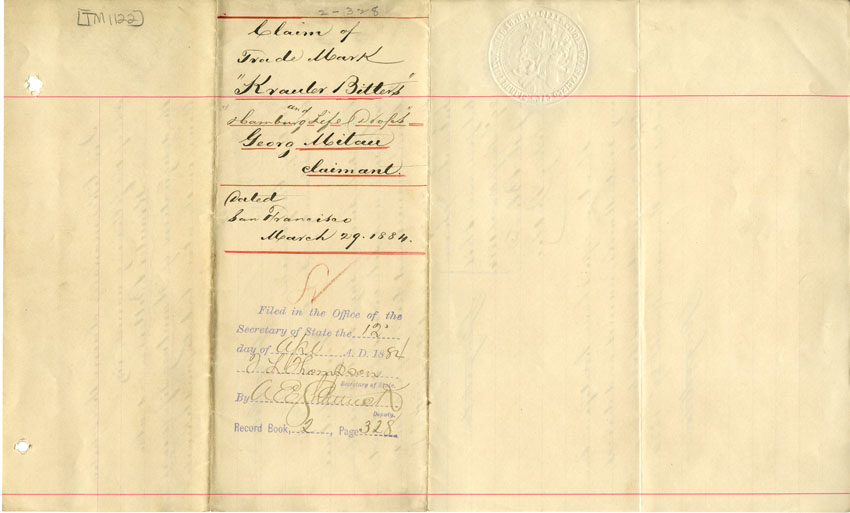 [TM1122]
2-328
Claim of
Trade Mark
"Krauter Bitters"
and
"Hamburg Life Drops"
Georg Mitau
claimant.
Dated
San Francisco
March 29. 1884.
Filed in the Office of the
Secretary of State the 12
day of Apl A. D. 1884
T L Thompson
Secretary of State.
By A E Shattuck
Deputy.
Record Book, 2, Page 328